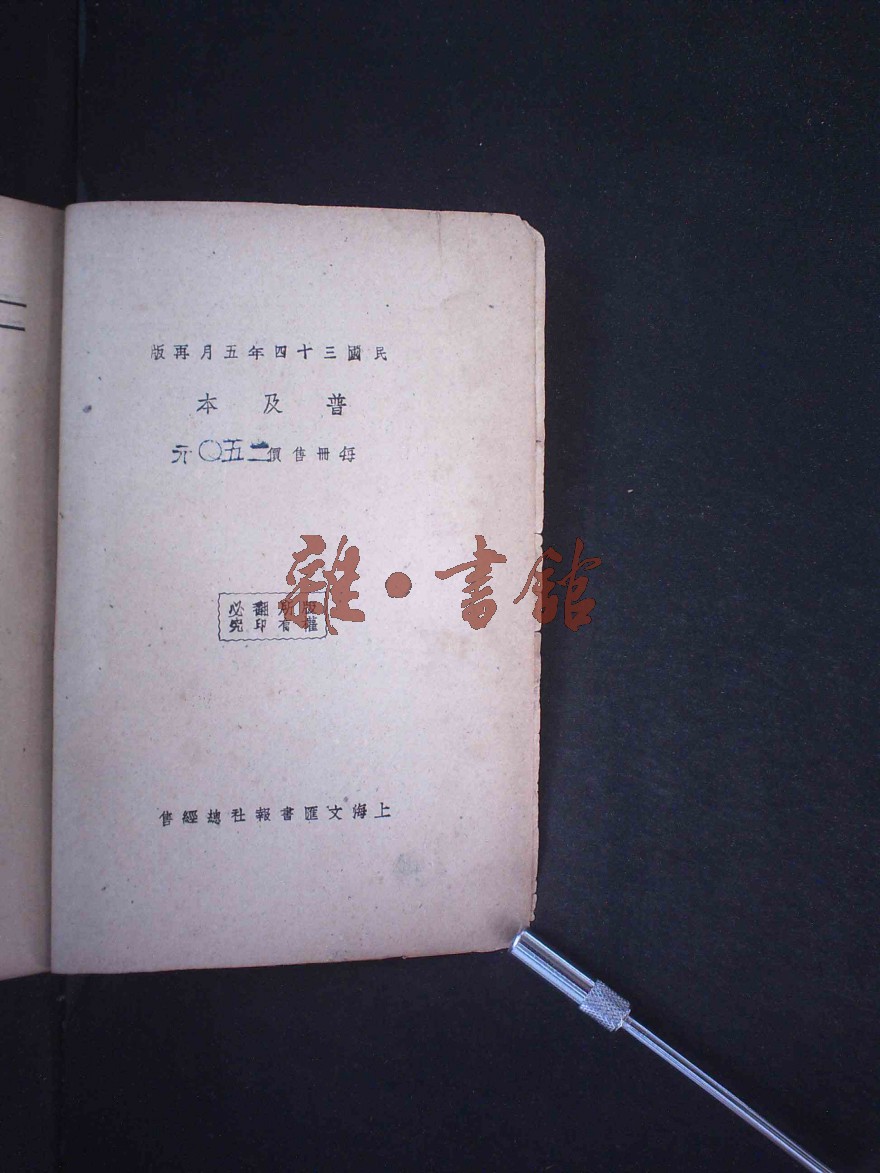 民國三十四年五月再版
普及本
每冊售價二五〇元
版權所有翻印必究
雜·書館
上海文匯書報社總經售